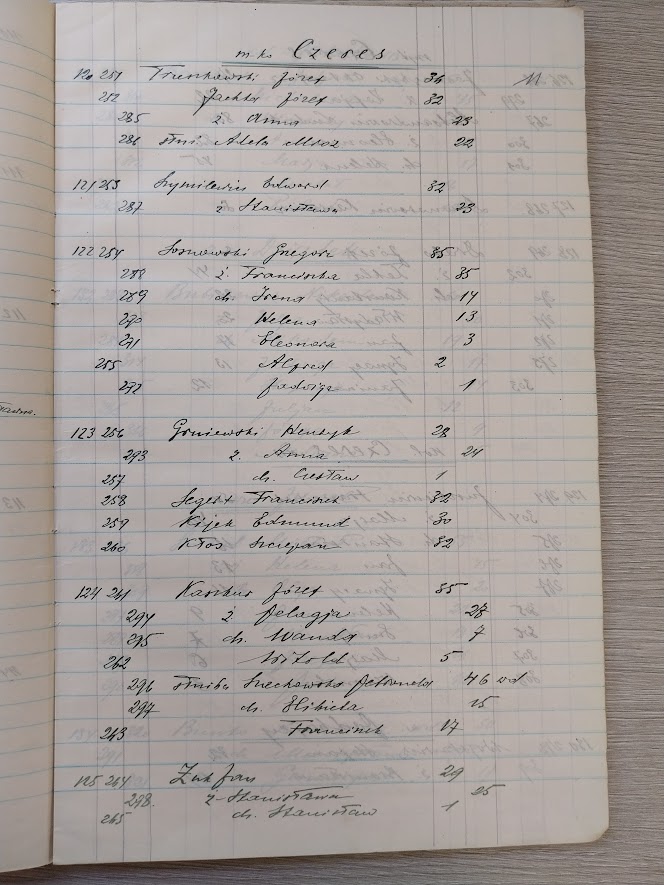 mko Czeres
120 251 Truszkowski Józef 34 11
252 Jachta Józef 32
285 ż. Anna 23
286 służ. Adela Mroz 22
121 253 Szymilewicz Edward 32
287 ż Stanisława 23
122 254 Sosnowski Gregorz 35
288 ż. Franciszka 35
289 ch. Irena 14
290 Helena 13
291 Eleonora 3
255 Alfred 2
292 Jadwiga 1
123 256 Henryk 28
293 ż. Anna 24
257 ch. Czesław 1
258 Segert Franciszek 32
259 Kijek Edmund 30
260 Kłos Szczepan 32
124 261 Józef 35
294 ż. Pelagja 28
295 ch. Wanda 7
262 Witold 5
296 Petronela 46 wd
297 ch. Elżbieta 15
263 Franciszek 17
125 264 Żuk Jan 29
298. ż Stanisława 25
265 ch. Stanisław 1